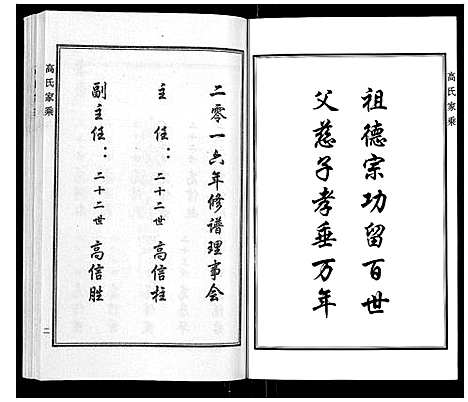 高氏家乘
祖德宗功留百世
父慈子孝垂万年
二零一六年修谱理事会
主 任：二十二世 高信柱
副主任：二十二世 高信胜
高氏家乘
二